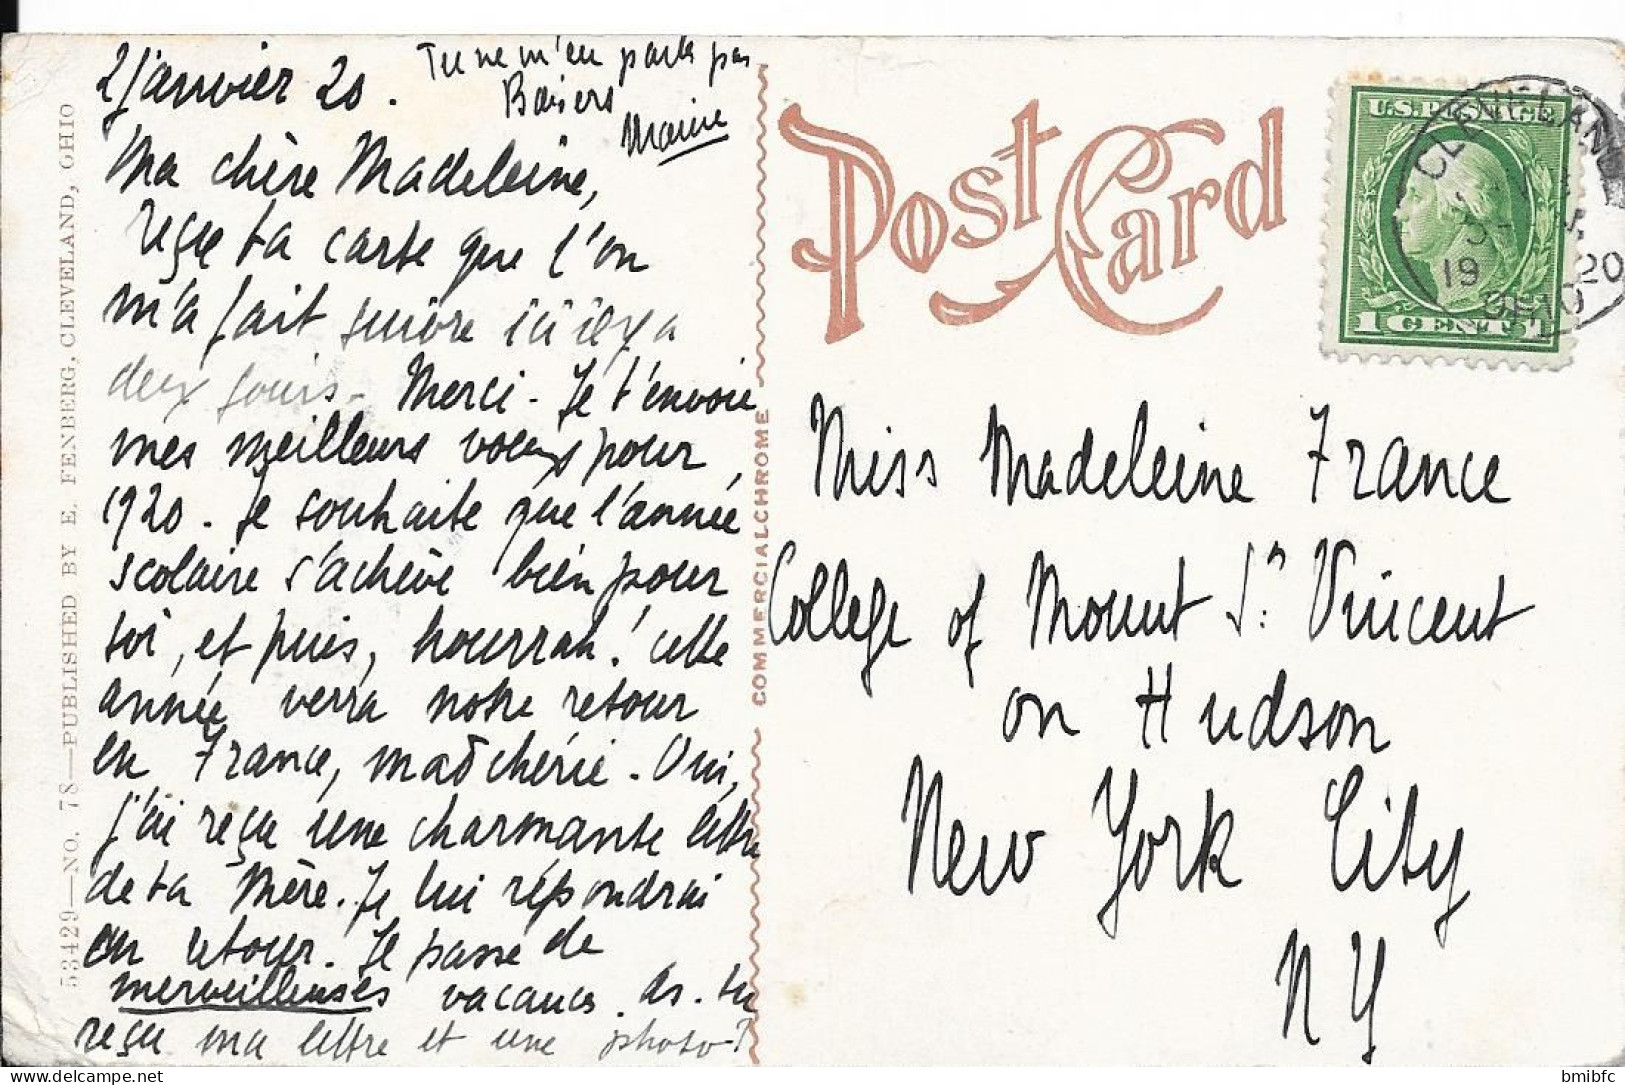 2 Janvier 20.
Tu ne m'en parles pas
Baisers
Marie
Ma chère Madeleine,
reçu ta carte que l'on
m'a fait suivre ici il y a
deux jours - Merci - Je t'envoie
mes meilleurs voeux pour
1920. Je souhaite que l'année
scolaire s'achève bien pour
toi, et puis, hourrah! cette
année verra notre retour
en France, ma chérie. Oui,
j'ai reçu une charmante lettre
de ta Mère. Je lui répondrai
au retour. Je passe de
merveilleuses vacances. As-tu
reçu ma lettre et une photo?
53429—NO. 78—PUBLISHED BY E. FENBERG, CLEVELAND, OHIO
COMMERCIALCHROME
Post Card
U.S. POSTAGE
1 CENT 1
CLEVELAND
19 20
OHIO
Miss Madeleine France
College of Mount St Vincent
on Hudson
New York City
NY
bmibfc